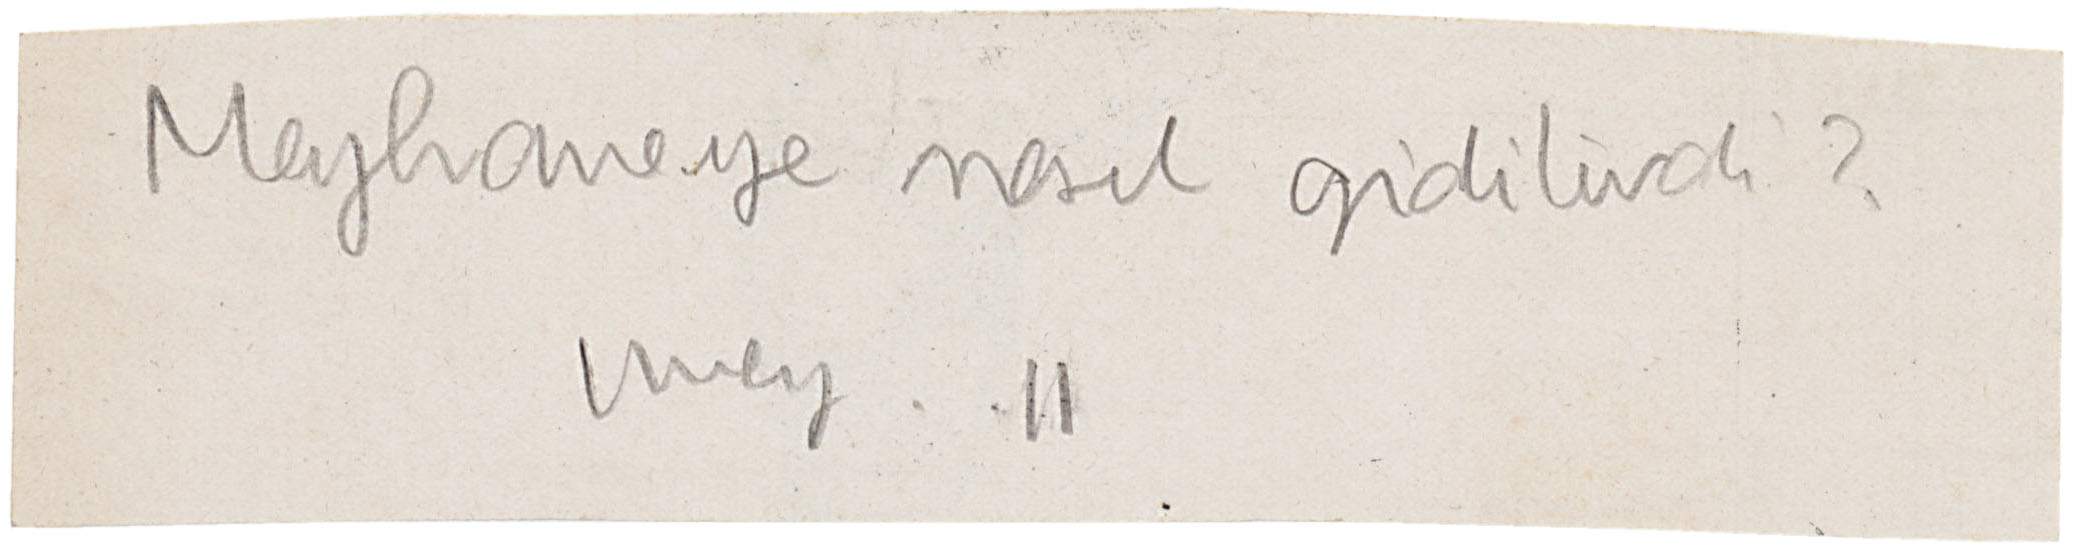 Meyhaneye nasıl gidilirdi?
mey. 11